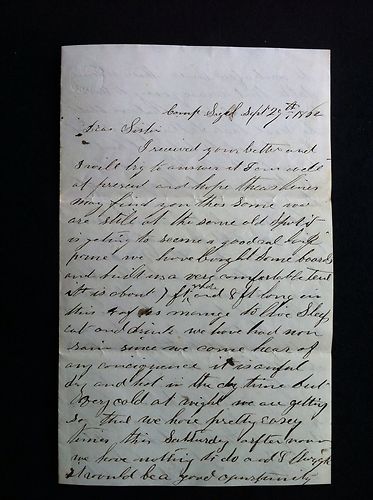 Camp Sigel Sept 27th, 1862
Dear Sister
I received your letter and
I will try to answer it I am well
at present and hope these lines
may find you the same we
are still at the same old spot it
is geting to seeme a good eal like
home we have bought some boards
and built us a very comfortable tent
it is about 7 ft wide and 8 ft long in
this 4 of us manage to live Sleep
eat and drink we have had non
rain since we come hear of
any consequence it is awful
dry and hot in the day time but
very cold at night we are getting
so that we have pretty easey
times this Saturday afternoon
we have nothing to do and I thought
it would be a good opertunity